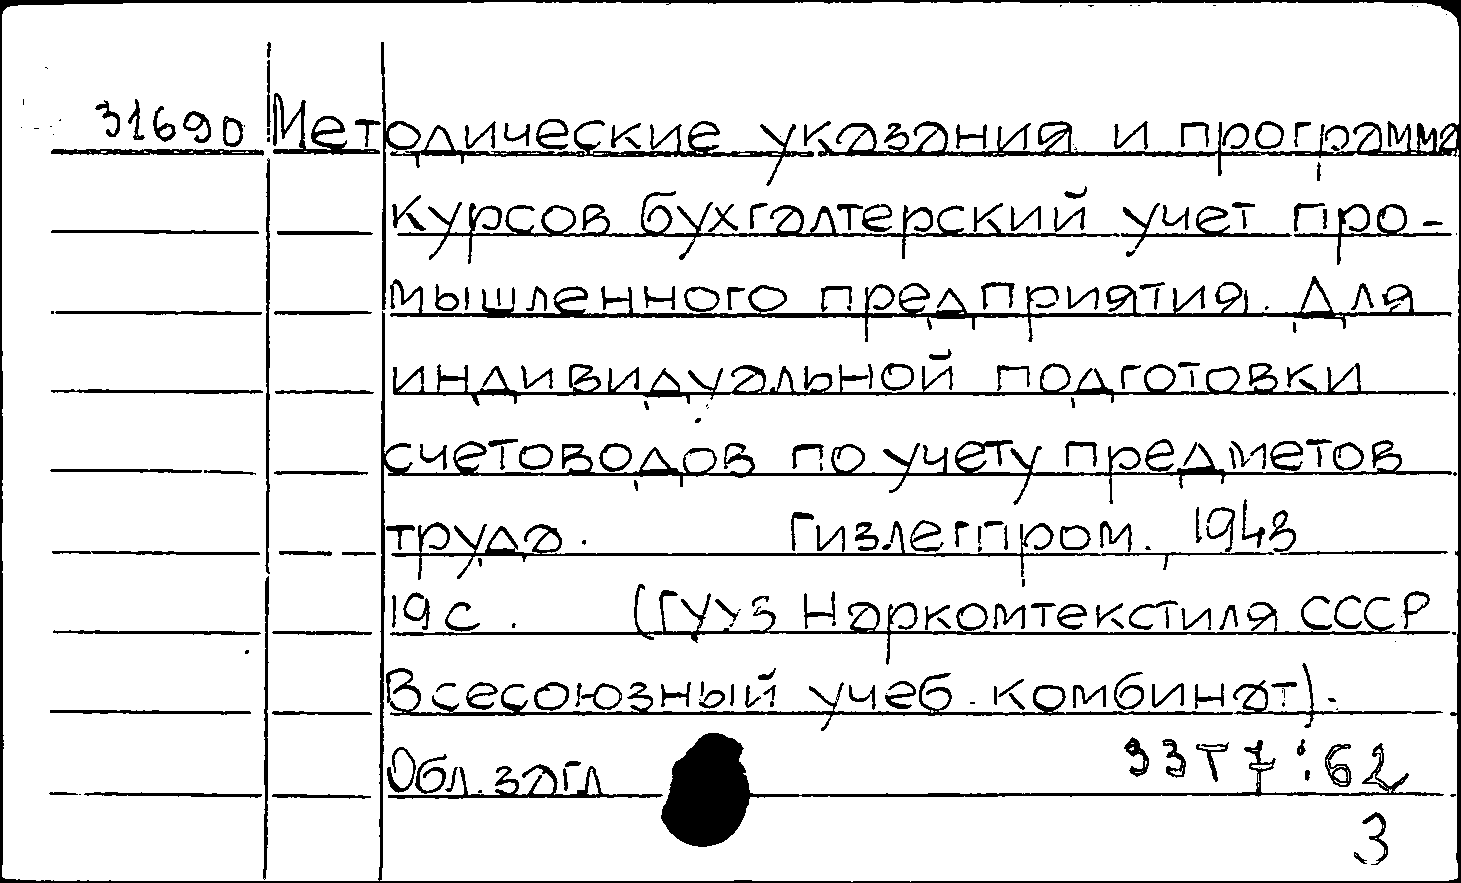 31690 Методические указания и программа
курсов бухгалтерский учет про-
мышленного предприятия. Для
индивидуальной подготовки
счетоводов по учету предметов
труда. Гизлегпром., 1943
19 с. (ГУУЗ Наркомтекстиля СССР
Всесоюзный учеб. комбинат).
Обл. загл
33Т7:62
3